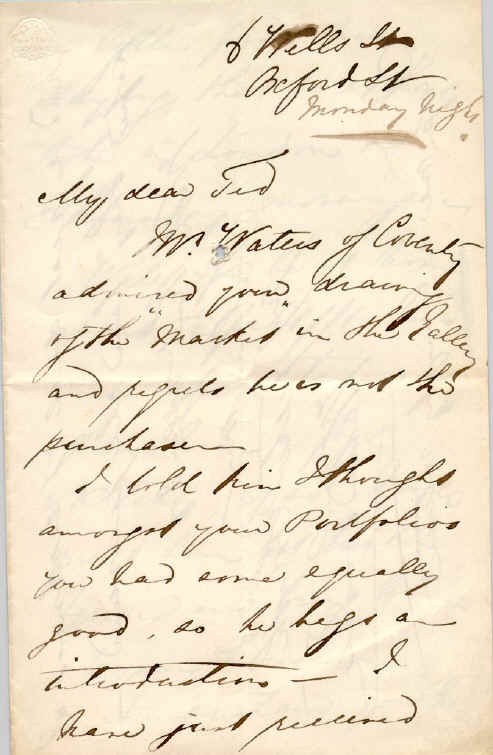 6 Wells St
Oxford St
Monday Night
My dear Ted
Mr. Waters of Coventry
admired your drawing
of the "Market" in the Gallery
and regrets he is not the
purchaser—
I told him I thought
amongst your Portfolios
you had some equally
good, so he begs an
introduction — I
have just received